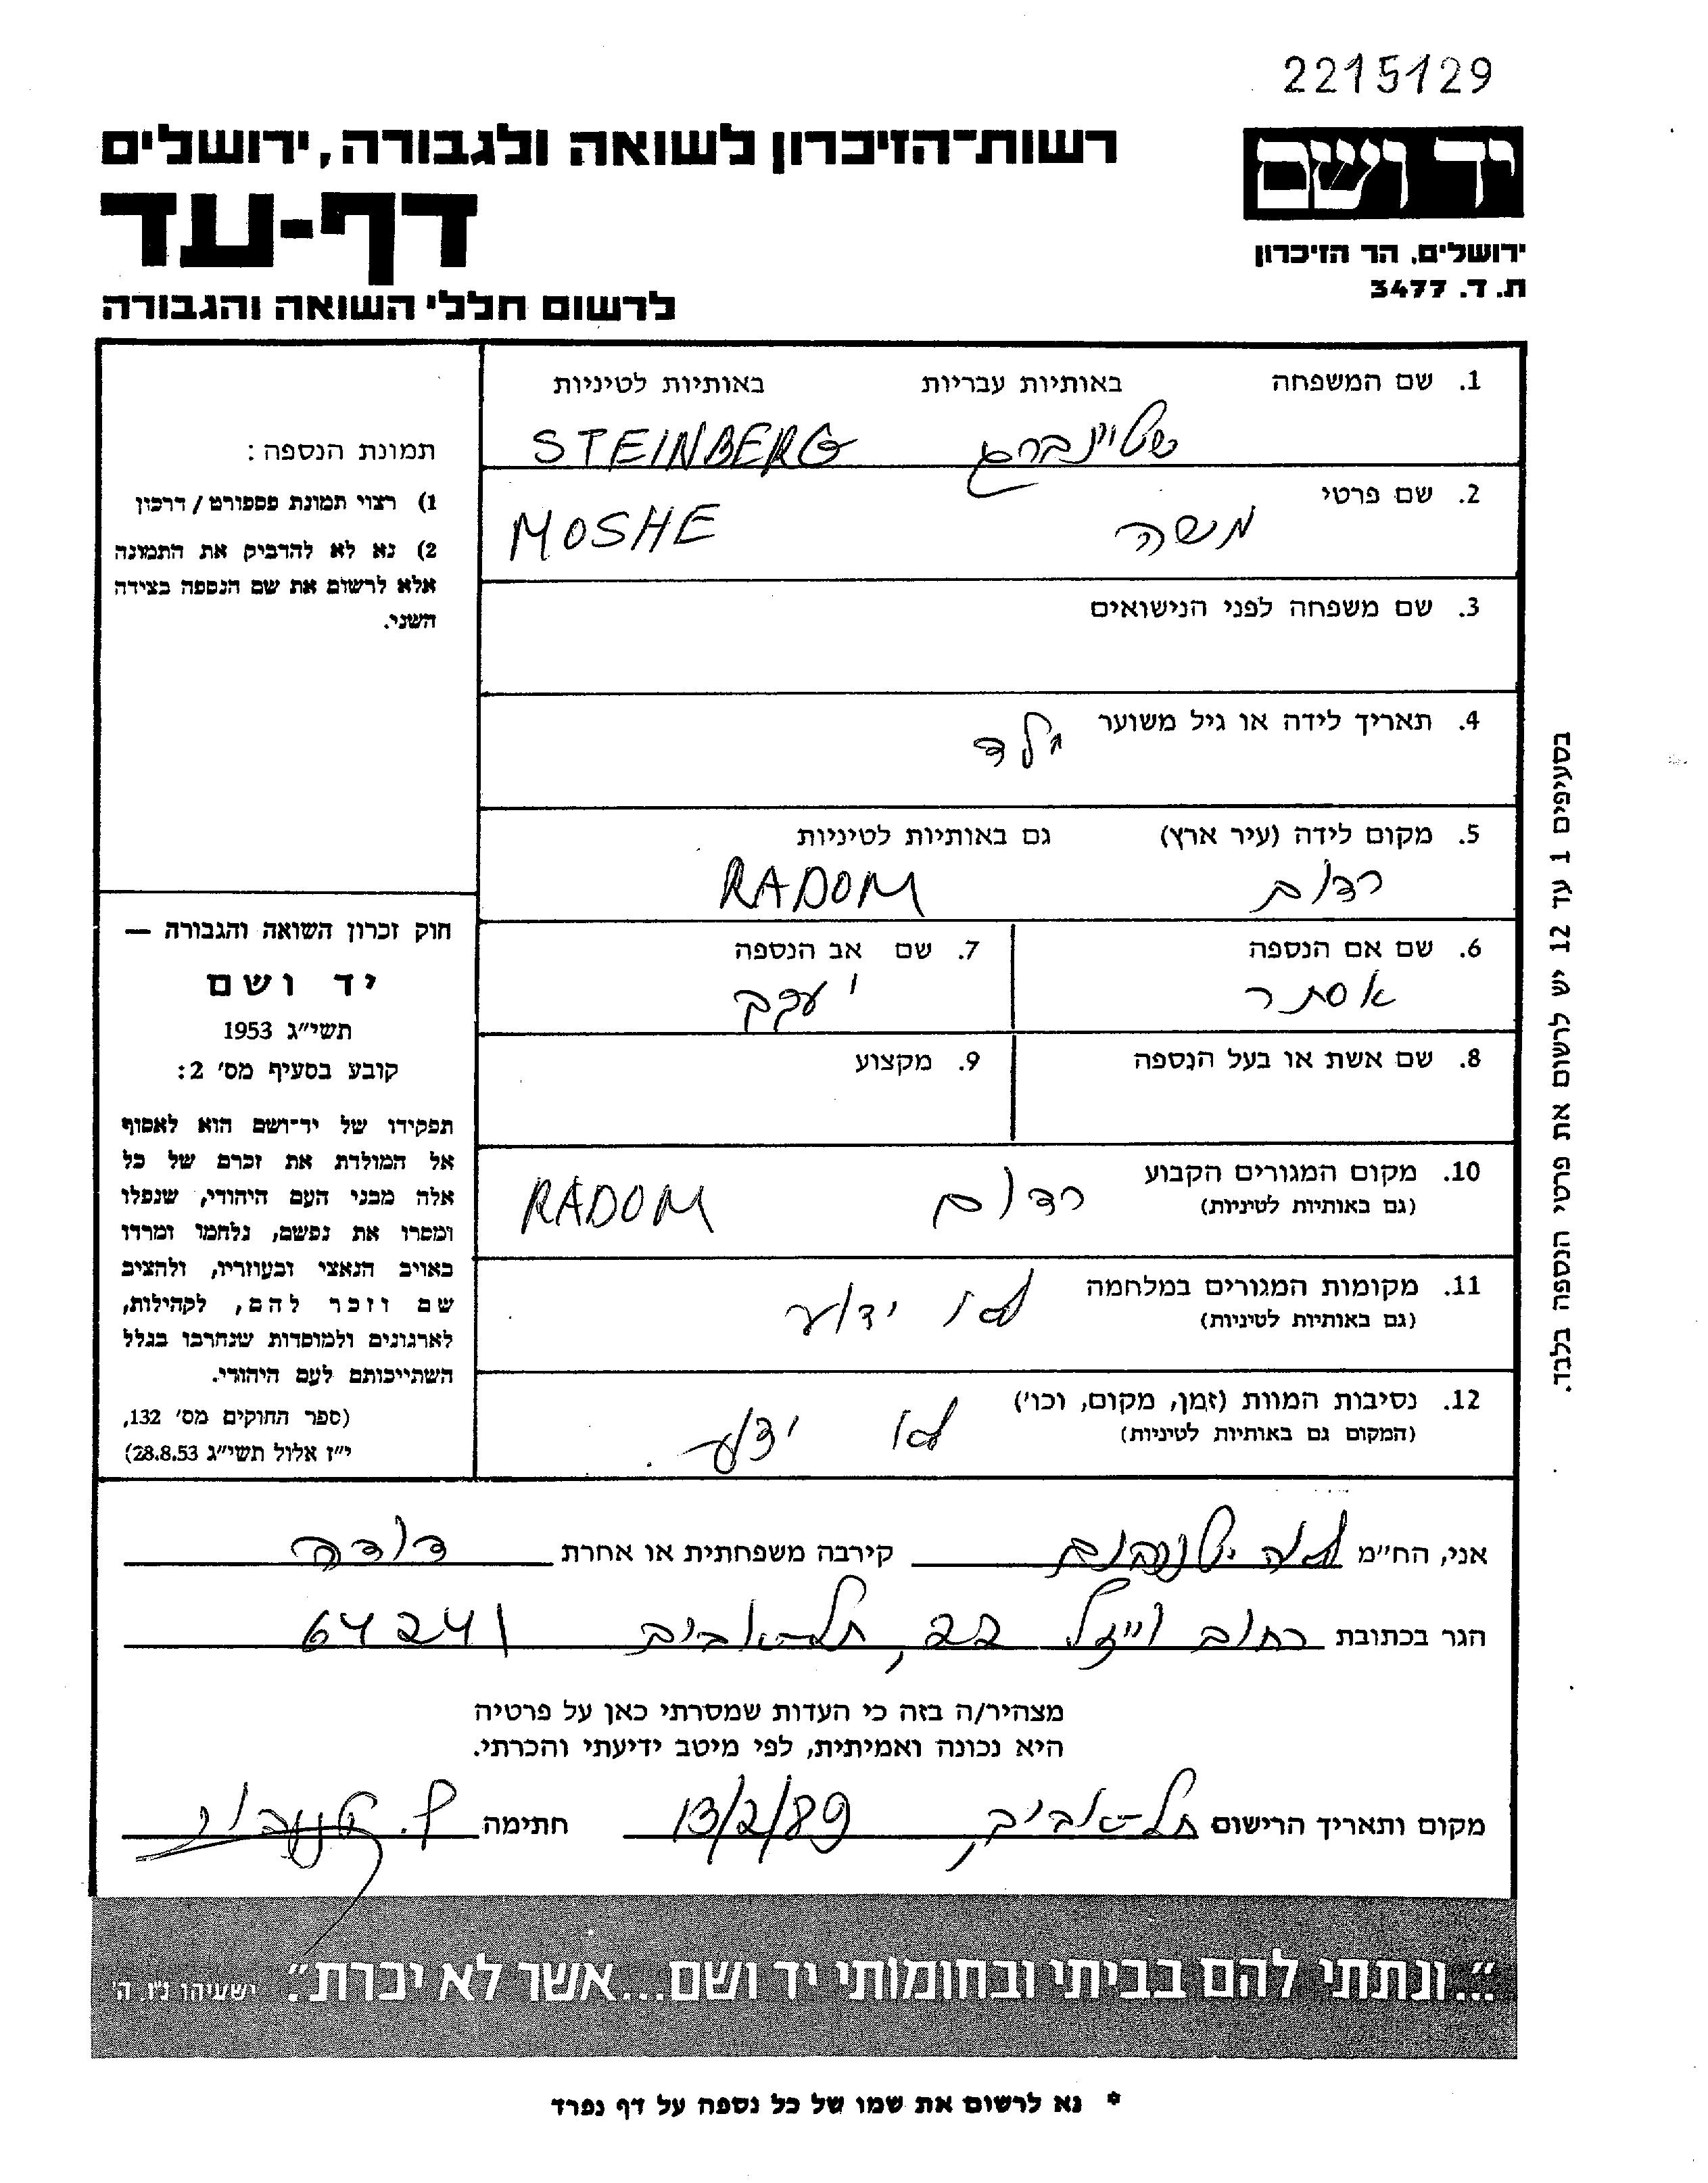 2215129
יד ושם
רשות־הזיכרון לשואה ולגבורה, ירושלים
דף-עד
ירושלים, הר הזיכרון
ת. ד. 3477
לרשום חללי השואה והגבורה
1. שם המשפחה באותיות עבריות באותיות לטיניות
שטיינברג STEINBERG
2. שם פרטי
משה MOSHE
3. שם משפחה לפני הנישואים
4. תאריך לידה או גיל משוער
ילד
5. מקום לידה (עיר ארץ) גם באותיות לטיניות
רדום RADOM
6. שם אם הנספה 7. שם אב הנספה
אסתר יעקב
8. שם אשת או בעל הנספה 9. מקצוע
10. מקום המגורים הקבוע
(גם באותיות לטיניות)
רדום RADOM
11. מקומות המגורים במלחמה
(גם באותיות לטיניות)
לא ידוע
12. נסיבות המוות (זמן, מקום, וכו')
(המקום גם באותיות לטיניות)
לא ידוע.
תמונת הנספה:
1) רצוי תמונת פספורט/דרכון
2) נא לא להדביק את התמונה
אלא לרשום את שם הנספה בצידה
השני.
חוק זכרון השואה והגבורה —
יד ושם
תשי"ג 1953
קובע בסעיף מס' 2:
תפקידו של יד־ושם הוא לאסוף
אל המולדת את זכרם של כל
אלה מבני העם היהודי, שנפלו
ומסרו את נפשם, נלחמו ומרדו
באויב הנאצי ובעוזריו, ולהציב
שם וזכר להם, לקהילות,
לארגונים ולמוסדות שנחרבו בגלל
השתייכותם לעם היהודי.
(ספר החוקים מס' 132,
י"ז אלול תשי"ג 28.8.53)
בסעיפים 1 עד 12 יש לרשום את פרטי הנספה בלבד.
אני, הח"מ קירבה משפחתית או אחרת דודה
הגר בכתובת רחוב וייזל 22, תל-אביב 64241
מצהיר/ה בזה כי העדות שמסרתי כאן על פרטיה
היא נכונה ואמיתית, לפי מיטב ידיעתי והכרתי.
מקום ותאריך הרישום תל-אביב, 13/2/89 חתימה
"...ונתתי להם בביתי ובחומותי יד ושם...אשר לא יכרת". ישעיהו נ"ו, ה'
* נא לרשום את שמו של כל נספה על דף נפרד